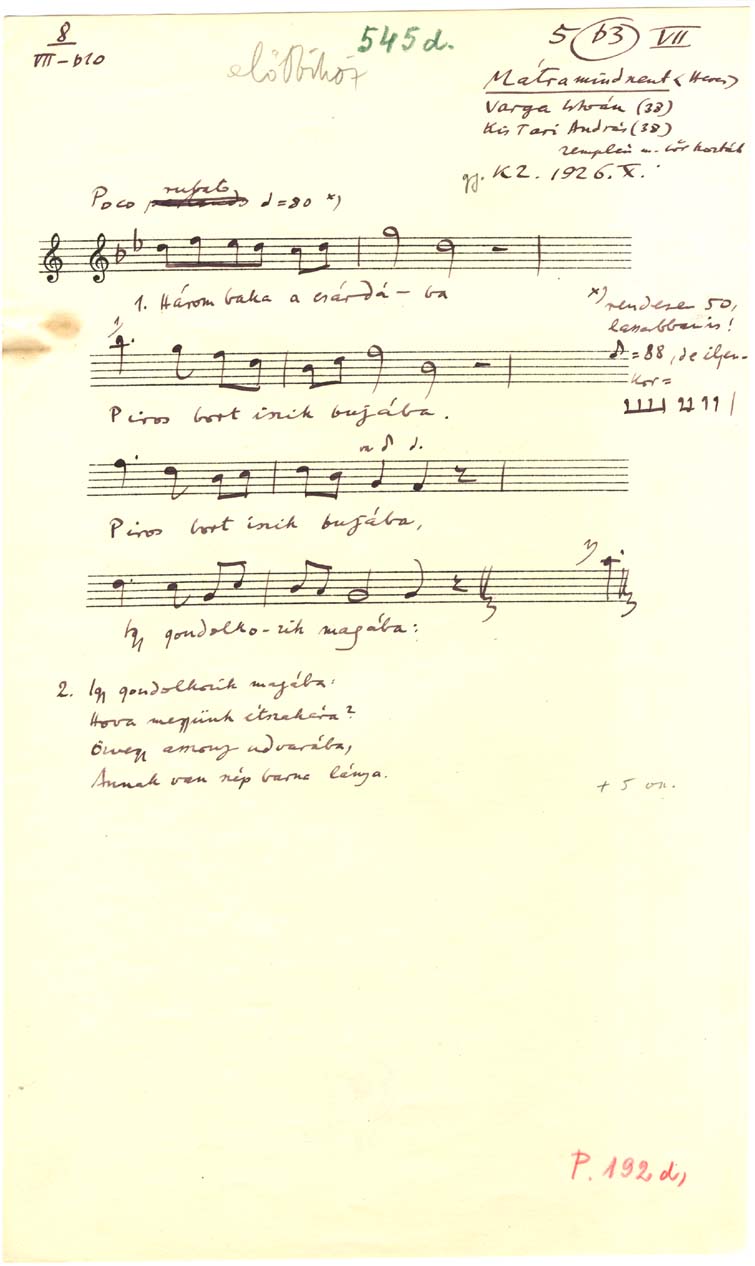 8
VII-b10
előbbihöz
545d.
5 b3 VII
Mátramindszent (Heves)
Varga István (38)
Kis Tari András (38)
zemplén m.
gy. KZ. 1926. X.
Poco rubato = 80 x)
1. Három baka a csárdá – ba
x) rendesen 50,
lassabban is!
= 88, de ilyen-
kor =
1)
Piros bort iszik bujába.
Piros bort iszik bujába,
1)
Így gondolko-zik magába:
2. Így gondolkozik magába:
Hova megyünk étszakára?
Özvegy asszony udvarába,
Annak van szép barna lánya.
+ 5 vsz.
P. 192 d,